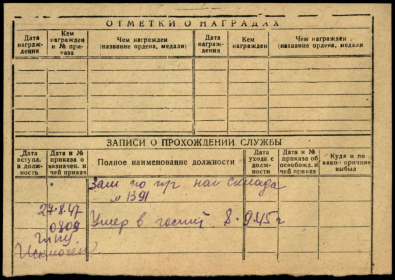 ОТМЕТКИ О НАГРАДАХ
Дата награж-дения
Кем награжден и № при-каза
Чем награжден (название ордена, медали)
Дата награж-дения
Кем награжден
Чем награжден (название ордена, медали)
ЗАПИСИ О ПРОХОЖДЕНИИ СЛУЖБЫ
Дата вступ. в долж-ность
Дата и № приказа о назначен. и чей приказ
Полное наименование должности
Дата ухода с долж-ности
Дата и № приказа об освобожд. и чей приказ
Куда и по какой причине выбыл
Зам по
нач склада
№ 1391
27.8.47
0809
Умер в госпит. 8.9.45 г